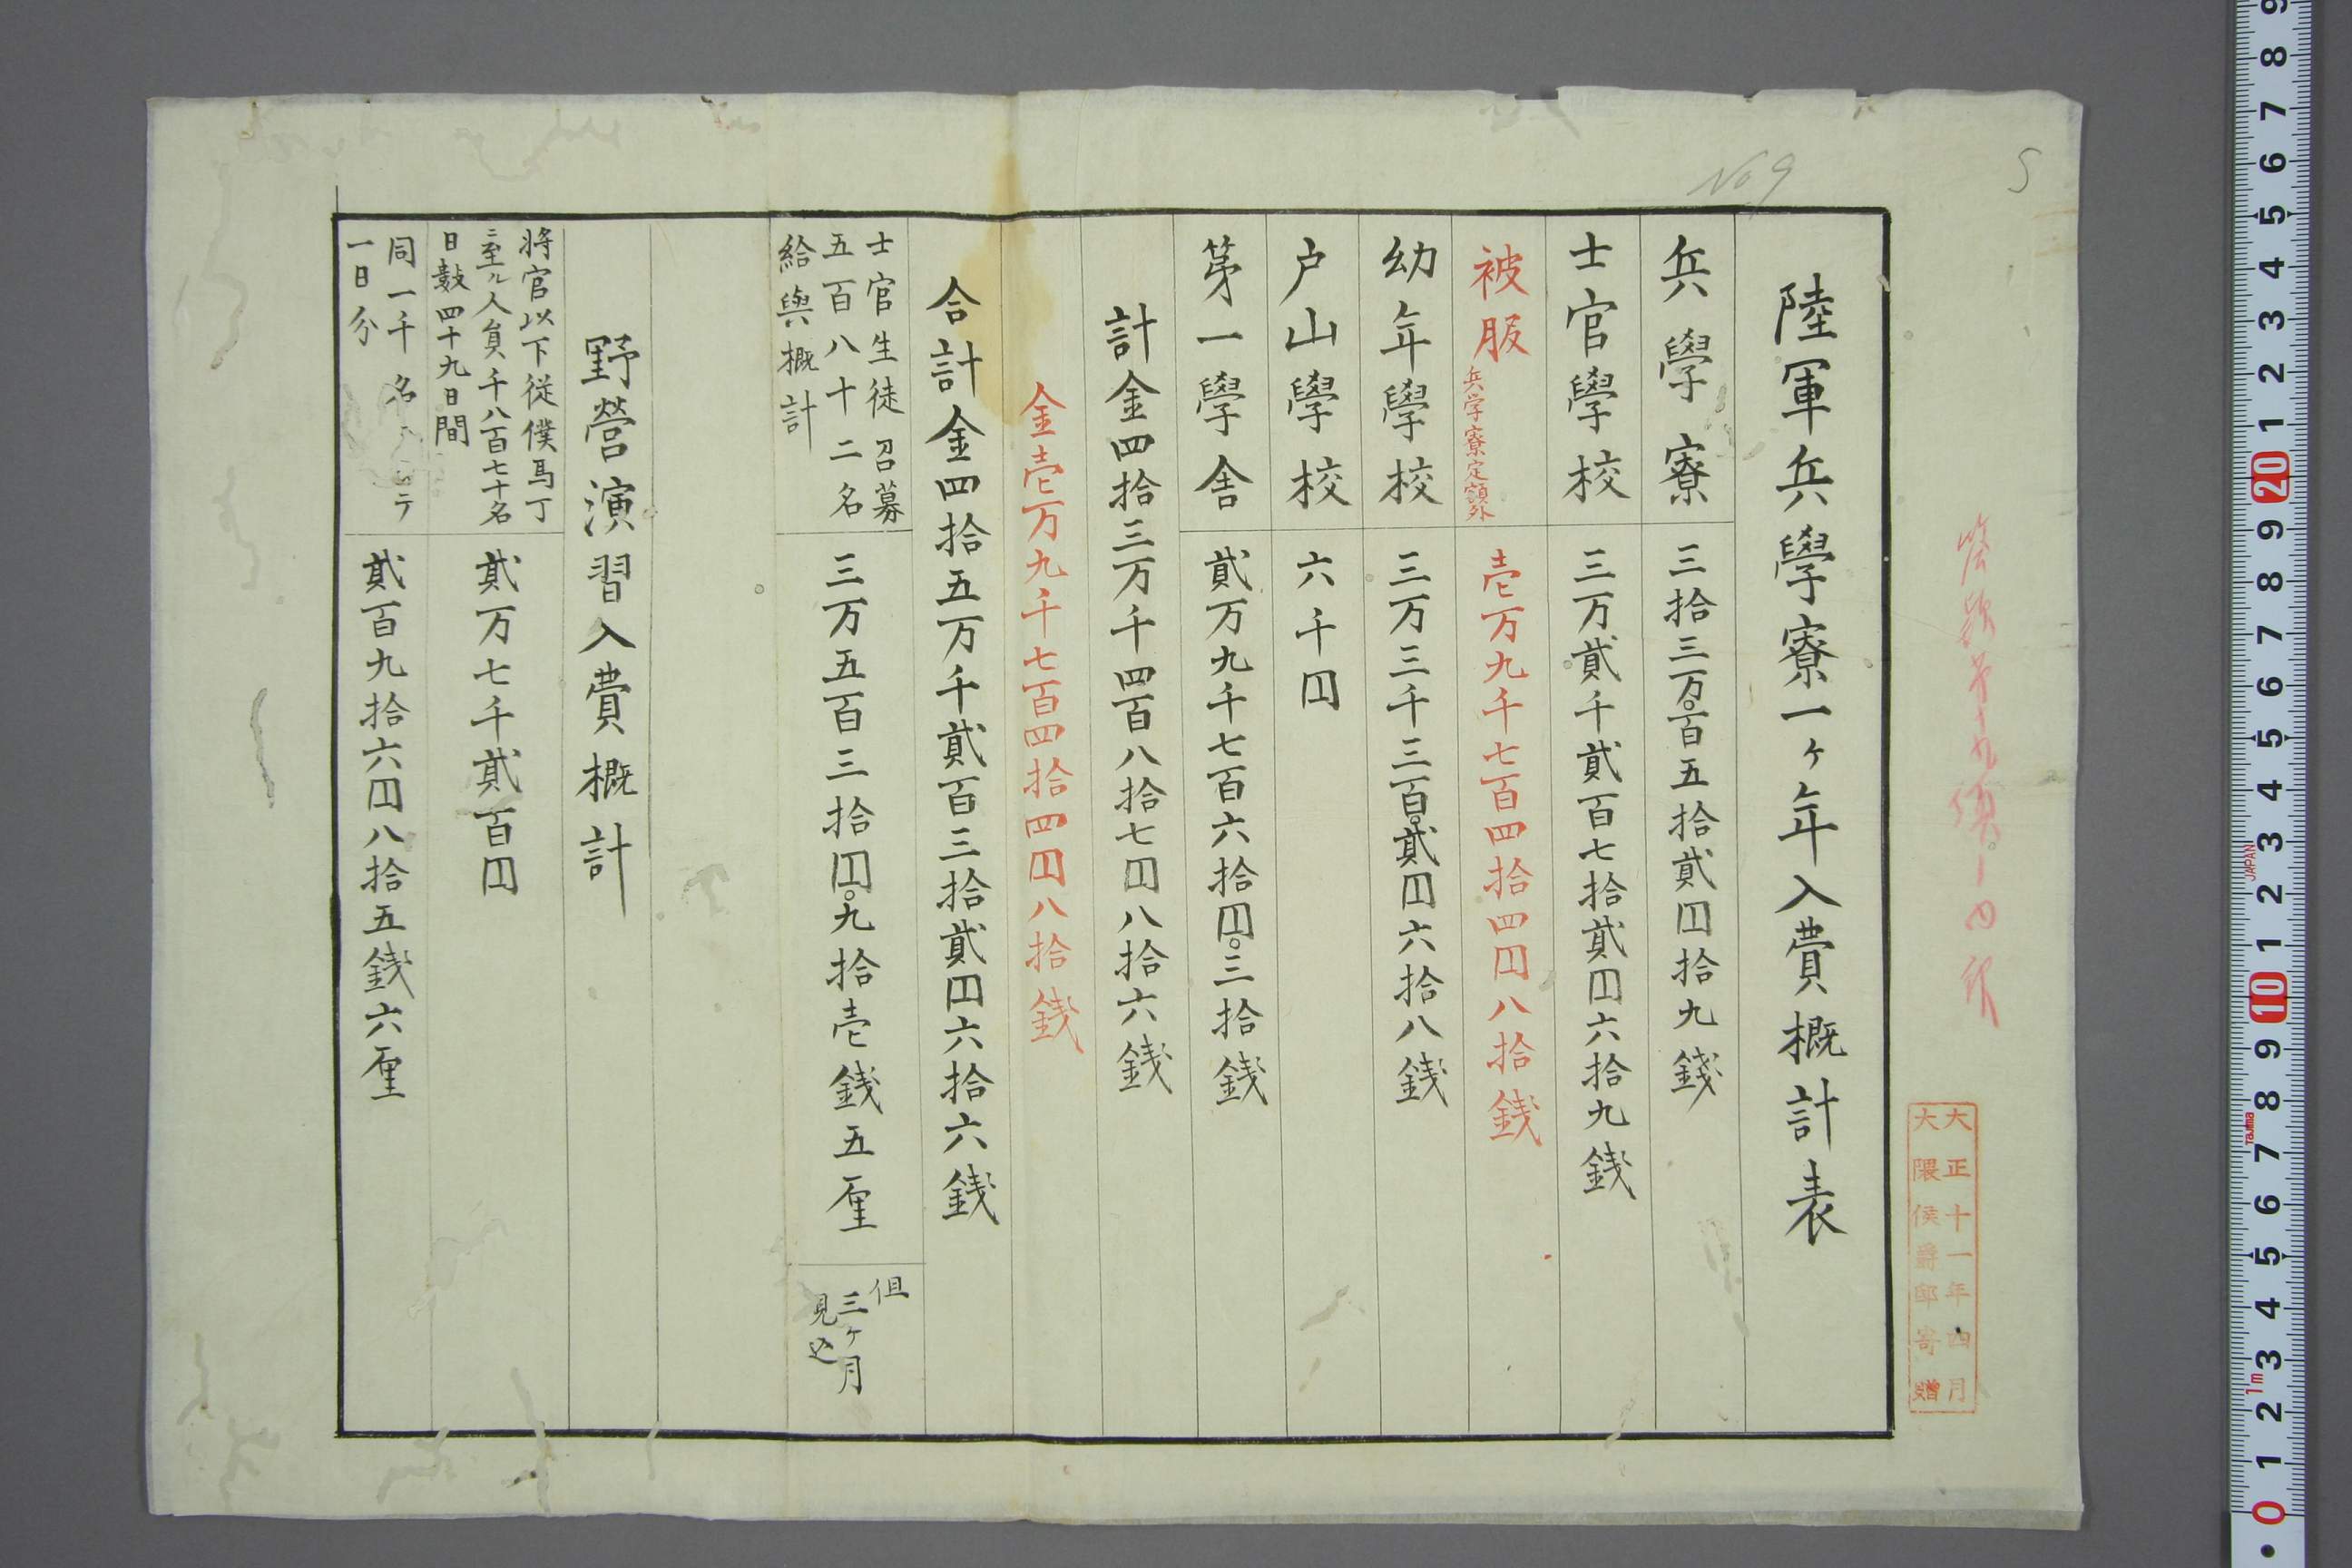 S
No 9
大正十一年四月
大隈侯爵邸寄贈
陸軍兵學寮一ヶ年入費概計表
兵學寮
三拾三万〇百五拾貳円拾九錢
士官學校
三万貳千貳百七拾貳円六拾九銭
被服
兵学寮定額外
壱万九千七百四拾四円八拾銭
幼年學校
三万三千三百〇貳円六拾八銭
户山學校
六千円
第一學舎
貳万九千七百六拾円〇三拾銭
計金四拾三万千四百八拾七円八拾六銭
金壱万九千七百四拾四円八拾銭
合計金四拾五万千貳百三拾貳円六拾六銭
士官生徒召募
五百八十二名
給與概計
三万五百三拾円〇九拾壱銭五厘
但
三ヶ月
見込
野營演習入費概計
将官以下従僕馬丁
ニ至ル人員千八百七十名
日數四十九日間
貳万七千貳百円
同一千名
一日分
貳百九拾六円八拾五銭六厘